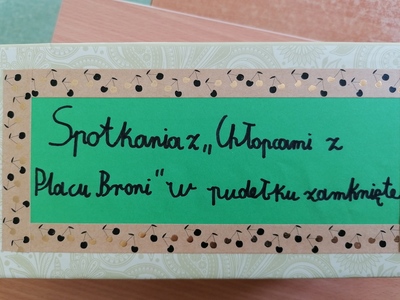 Spotkania z „Chłopcami z
Placu Broni" w pudełku zamknięte